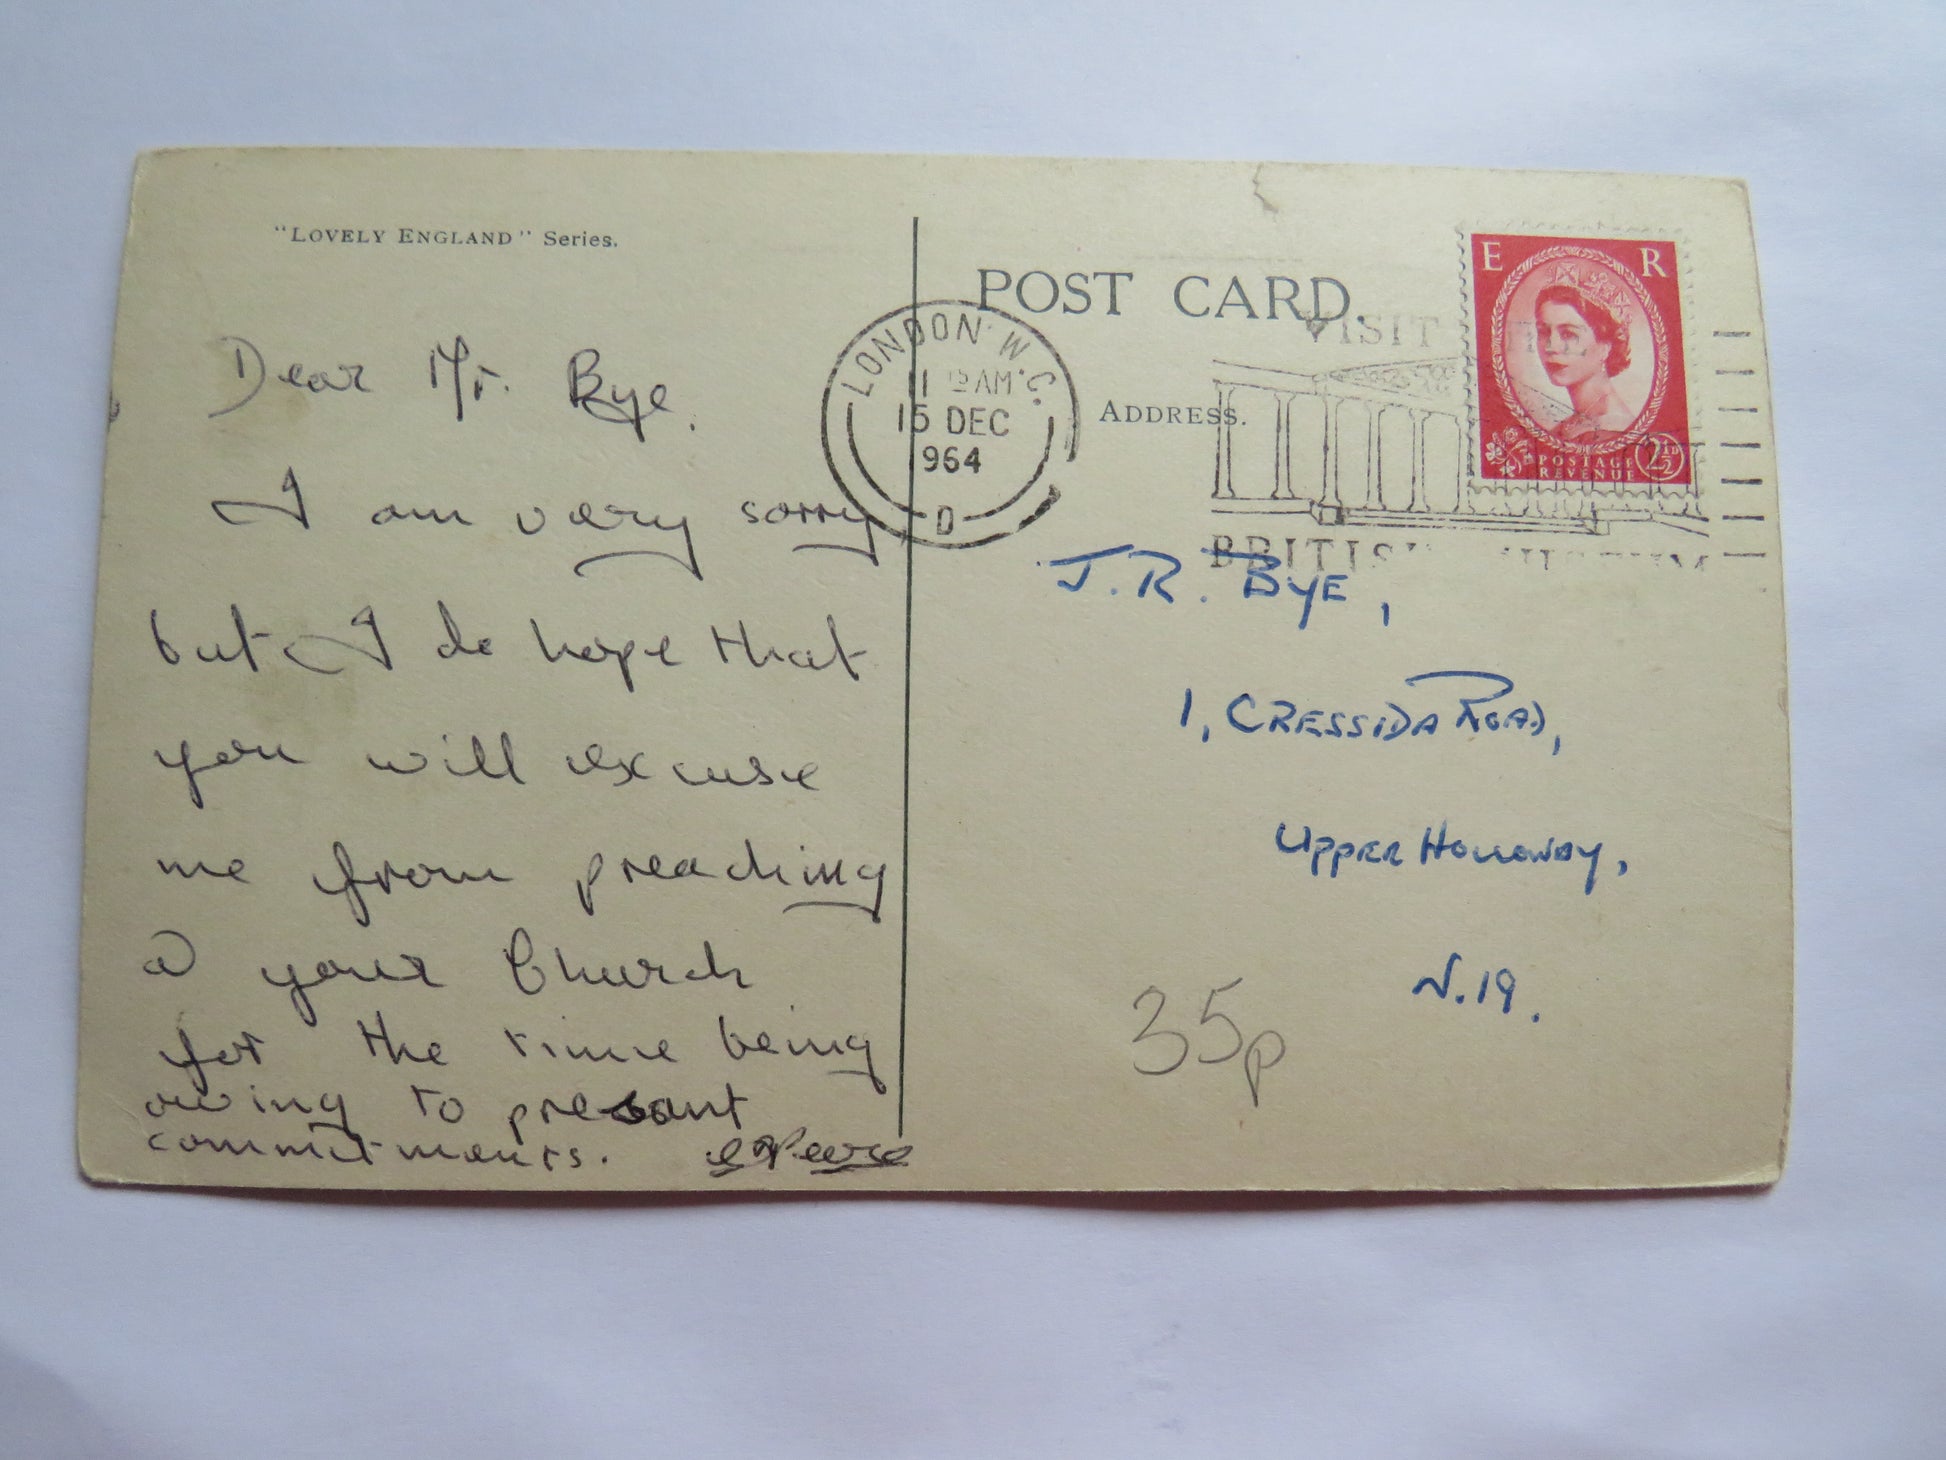 "LOVELY ENGLAND" Series.
Dear Mr. Bye.
I am very sorry
but I do hope that
you will excuse
me from preaching
@ your Church
for the time being
owing to present
commitments.
POST CARD.
ADDRESS.
LONDON W.C.
AM
15 DEC
964
D
VISIT
BRITISH MUSEUM
E R
POSTAGE
REVENUE
2½D
J.R. BYE,
1, CRESSIDA ROAD,
UPPER HOLLOWAY,
N.19.
35p